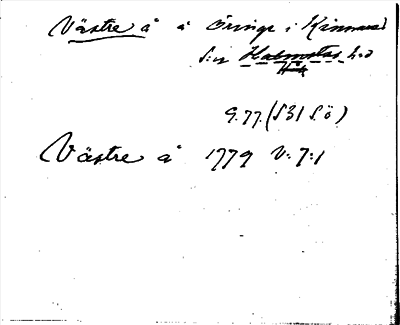 Västre å å Öringe i Kinnared
s:n Halmstas h:d
G.77. (S31 S.ö)
Västre å 1779 V:7:1